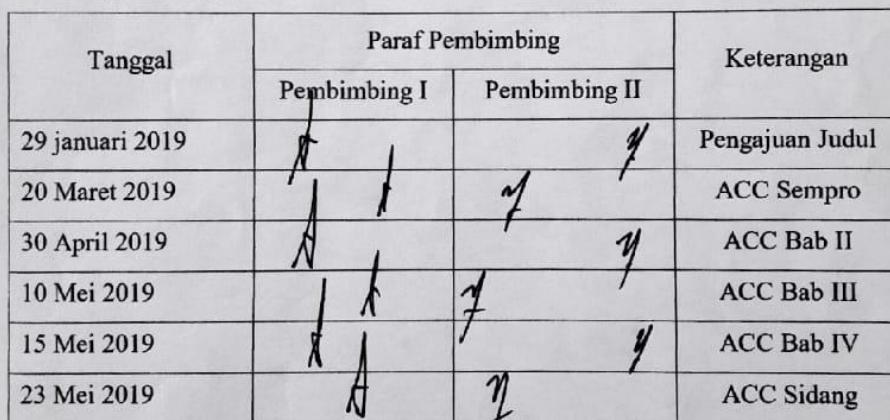 Tanggal Paraf Pembimbing Keterangan
Pembimbing I Pembimbing II
29 januari 2019 Pengajuan Judul
20 Maret 2019 ACC Sempro
30 April 2019 ACC Bab II
10 Mei 2019 ACC Bab III
15 Mei 2019 ACC Bab IV
23 Mei 2019 ACC Sidang